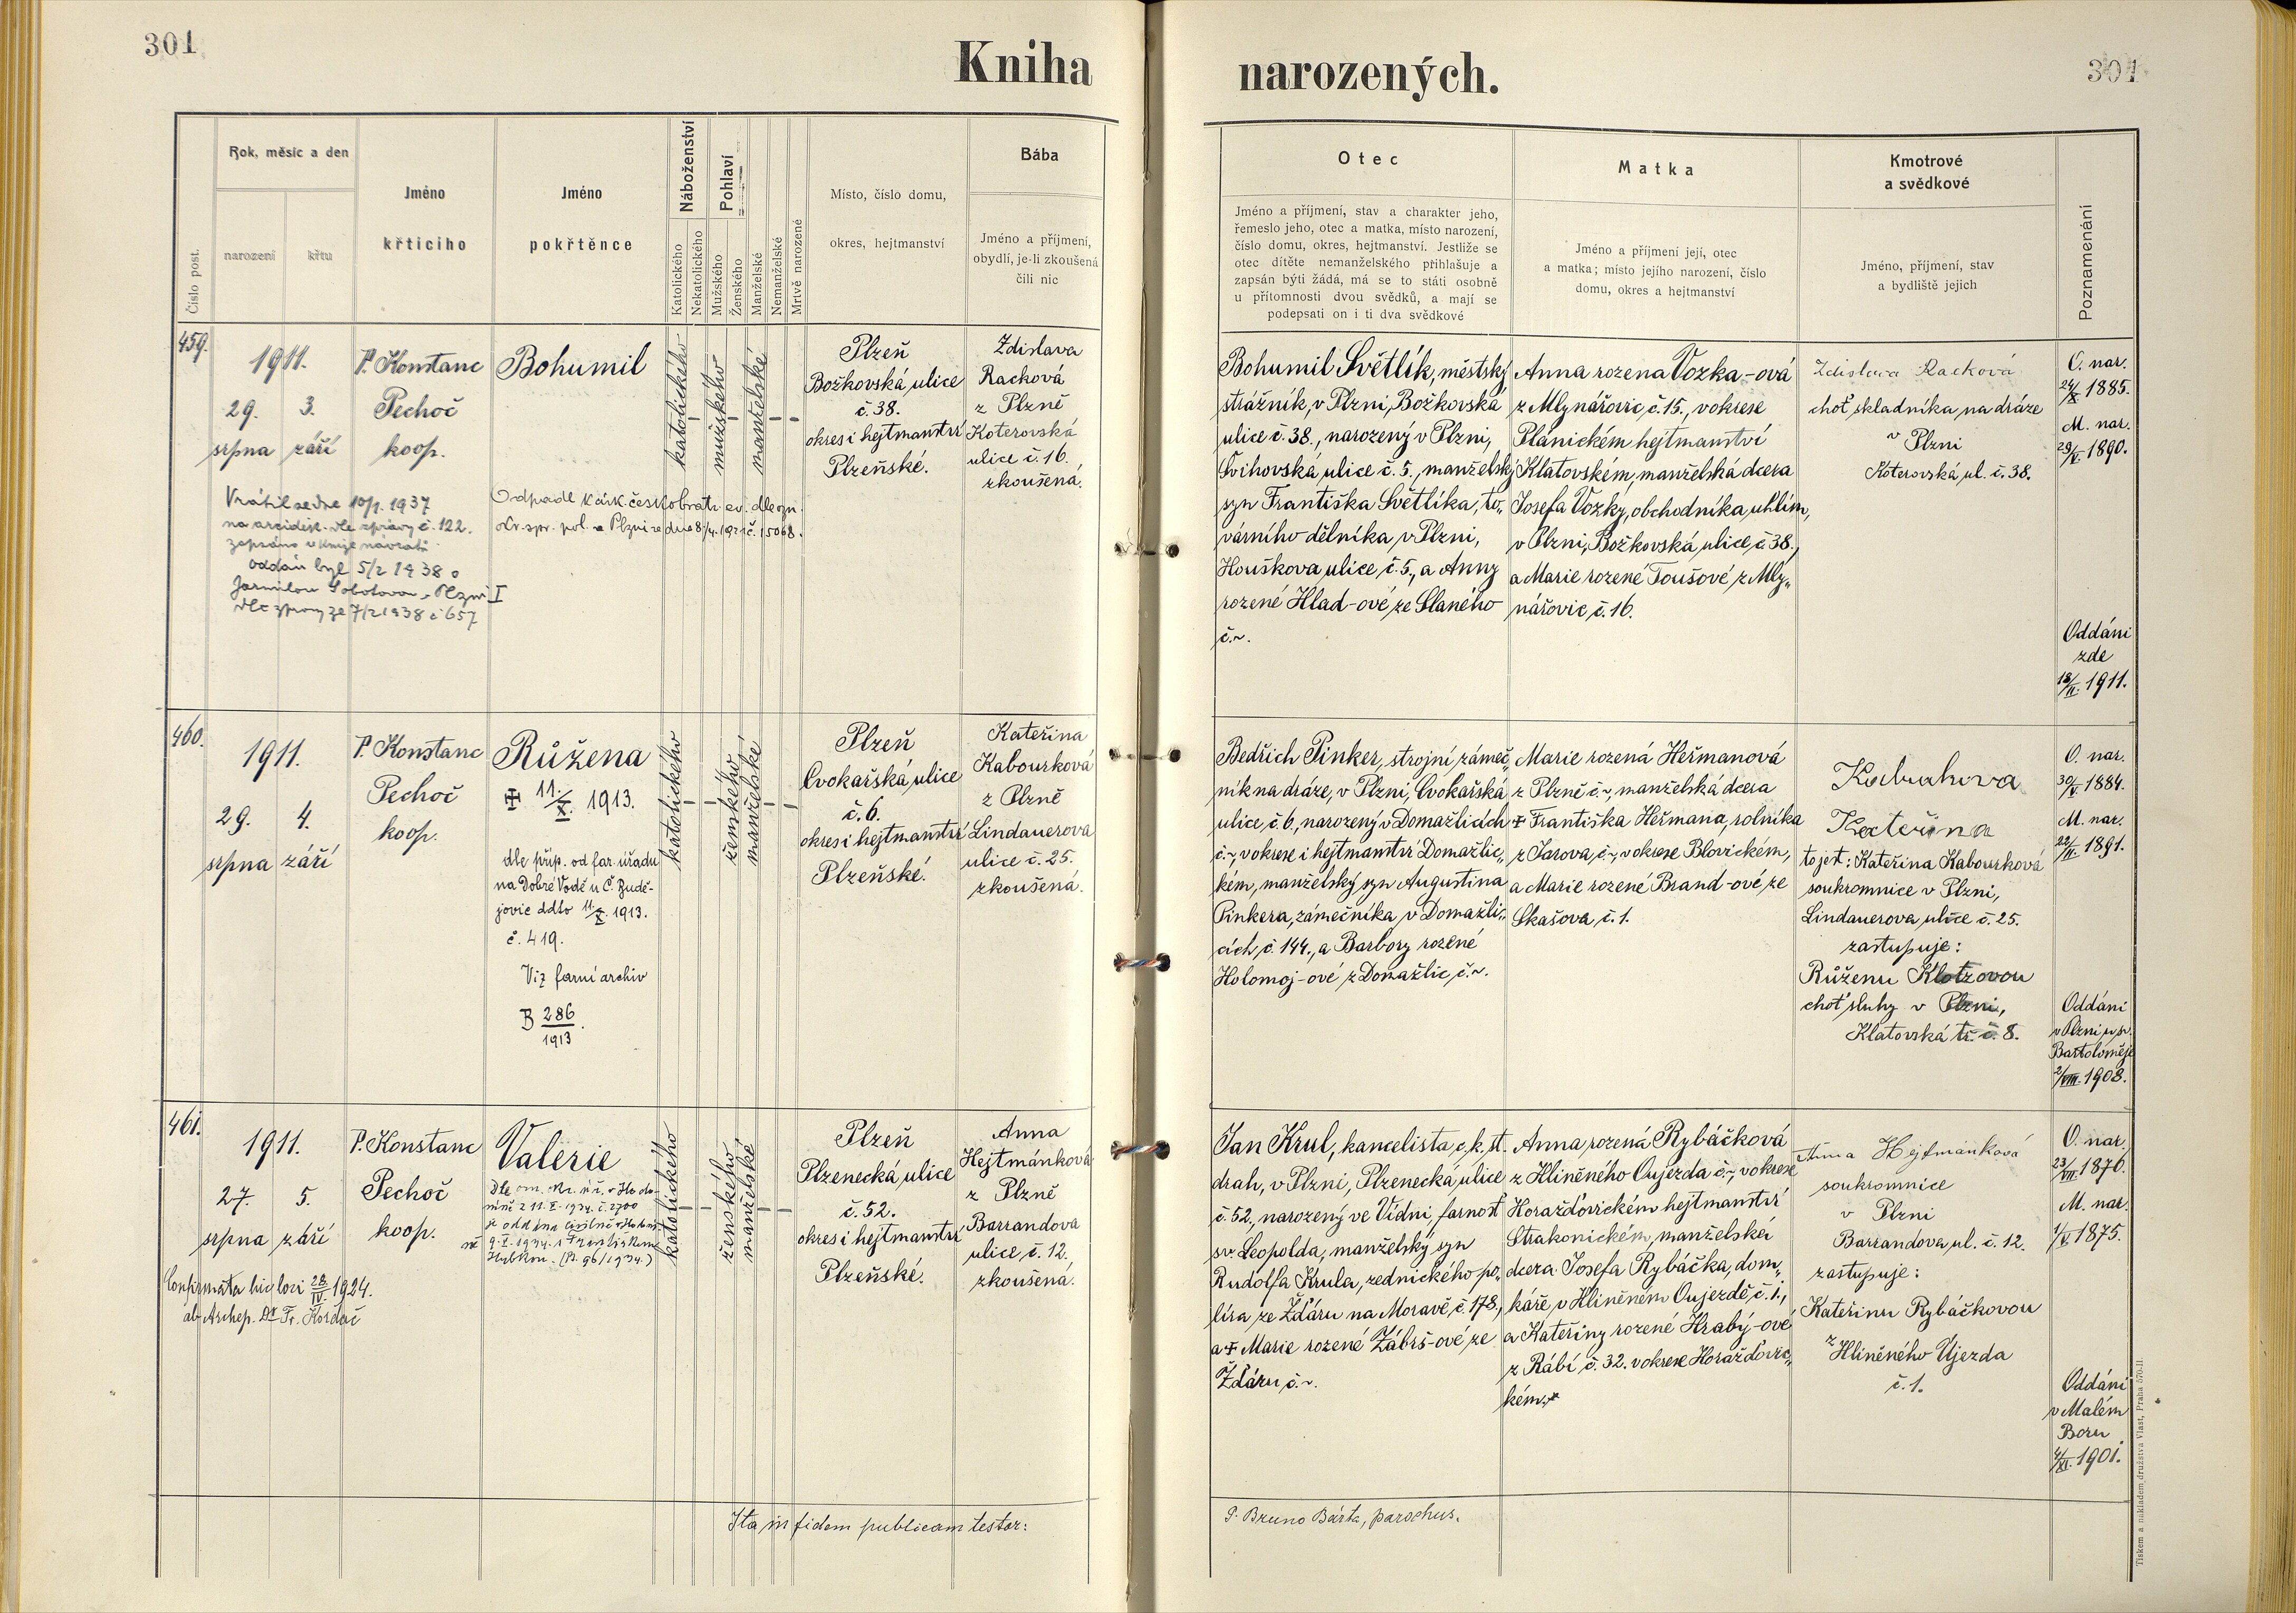 301
Kniha
narozených.
301
Číslo post.
Rok, měsíc a den
narození
křtu
Jméno
křticího
Jméno
pokřtěnce
Náboženství
Katolického
Nekatolického
Pohlaví
Mužského
Ženského
Manželské
Nemanželské
Mrtvě narozené
Místo, číslo domu,
okres, hejtmanství
Bába
Jméno a příjmení,
obydlí, je-li zkoušená
čili nic
Otec
Jméno a příjmení, stav a charakter jeho,
řemeslo jeho, otec a matka, místo narození,
číslo domu, okres, hejtmanství. Jestliže se
otec dítěte nemanželského přihlašuje a
zapsán býti žádá, má se to státi osobně
u přítomnosti dvou svědků, a mají se
podepsati on i ti dva svědkové
Matka
Jméno a příjmení její, otec
a matka; místo jejího narození, číslo
domu, okres a hejtmanství
Kmotrové
a svědkové
Jméno, příjmení, stav
a bydliště jejich
Poznamenání
459.
1911.
29. 3.
srpna září
P. Konstanc
Pechoč
koop.
Bohumil
katolického
mužského
manželské
Plzeň
Božkovská ulice
č. 38.
okres i hejtmanství
Plzeňské.
Zdislava
Racková
z Plzně
Koterovská
ulice č. 16.
zkoušená.
Vrátil se dne 10/1. 1937
na arciděk. dle zprávy č. 122.
zapsáno v knize návratů
oddán byl 5/2 1938 s
Jarmilou Sobotovou v Plzni I
dle zprávy ze 7/2 1938 č 657
Odpadl k círk. českobratr. ev. dle ozn.
okr. spr. pol. v Plzni ze dne 8./4. 1921 č. 15068.
Bohumil Světlík, městský
strážník, v Plzni, Božkovská
ulice č. 38., narozený v Plzni,
Švihovská ulice č. 5., manželský
syn Františka Světlíka, to„
várního dělníka v Plzni,
Houškova ulice č. 5., a Anny
rozené Hlad-ové ze Slaného
č. ~.
Anna rozena Vozka-ová
z Mlynářovic č. 15., v okrese
Plánickém hejtmanství
Klatovském, manželská dcera
Josefa Vozky, obchodníka uhlím,
v Plzni, Božkovská ulice č. 38.,
a Marie rozené Toušové z Mly„
nářovic č. 16.
Zdislava Racková
choť skladníka na dráze
v Plzni
Koterovská ul. č. 38.
O. nar.
24/X. 1885.
M. nar.
29/V. 1890.
Oddáni
zde
18/II. 1911.
460.
1911.
29. 4.
srpna září
P. Konstanc
Pechoč
koop.
Růžena
✠ 11./X. 1913.
dle přip. od far. úřadu
na Dobré Vodě u Č. Budě-
jovic ddto 11./X. 1913.
č. 419.
Viz farní archiv
B 286/1913.
katolického
ženského
manželské
Plzeň
Cvokařská ulice
č. 6.
okres i hejtmanství
Plzeňské.
Kateřina
Kabourková
z Plzně
Lindauerova
ulice č. 25.
zkoušená.
Bedřich Pinker, strojní zámeč„
ník na dráze, v Plzni, Cvokařská
ulice, č. 6., narozený v Domažlicích
č. ~, v okrese i hejtmanství Domažlic„
kém, manželský syn Augustina
Pinkera, zámečníka v Domažli„
cích č. 144., a Barbory rozené
Holomoj-ové z Domažlic, č. ~.
Marie rozená Heřmanová
z Plzně č. ~, manželská dcera
✠ Františka Heřmana, rolníka
z Jarova, č. ~, v okrese Blovickém,
a Marie rozené Brand-ové, ze
Skašova, č. 1.
Kateřina
to jest: Kateřina Kabourková
soukromnice v Plzni,
Lindauerova ulice č. 25.
zastupuje:
Růženu Klotzovou
choť sluhy v Plzni,
Klatovská tř. č. 8.
O. nar.
30/V. 1884.
M. nar.
22/II. 1891.
Oddáni
v Plzni u sv.
Bartoloměje
2/VIII. 1908.
461.
1911.
27. 5.
srpna září
P. Konstanc
Pechoč
koop.
Valerie
č. 2700
je oddána civilně
9. I. 1934. s Františkem
(Pt. 96/1934.)
Confirmata hic loci 28/IV. 1924.
ab Archiep. Dr Fr. Kordač
katolického
ženského
manželské
Plzeň
Plzenecká ulice
č. 52.
okres i hejtmanství
Plzeňské.
Anna
Hejtmánková
z Plzně
Barrandova
ulice, č. 12.
zkoušená.
Jan Krul, kancelista c. k. st.
drah, v Plzni, Plzenecká ulice
č. 52., narozený ve Vídni, farnost
sv. Leopolda, manželský syn
Rudolfa Krula, zednického po„
líra ze Žďáru na Moravě č. 178.,
a ✠ Marie rozené Zábrš-ové ze
Žďáru č. ~.
Anna rozená Rybáčková
z Hliněného Oujezda č. ~, v okrese
Horažďovickém hejtmanství
Strakonickém, manželská
dcera Josefa Rybáčka, dom„
káře v Hliněném Oujezdě č. 1.,
a Kateřiny rozené Hrabý-ové
z Rábí č. 32. v okrese Horažďovic„
kém.
Anna Hejtmánková
soukromnice
v Plzni
Barrandova ul. č. 12.
zastupuje:
Kateřinu Rybáčkovou
z Hliněného Újezda
č. 1.
O. nar.
23/VII. 1876.
M. nar.
1/V. 1875.
Oddáni
v Malém
Boru
4/XI. 1901.
Ita in fidem publicam testor:
P. Bruno Bárta, parochus.
Tiskem a nákladem družstva Vlast, Praha 570-II.